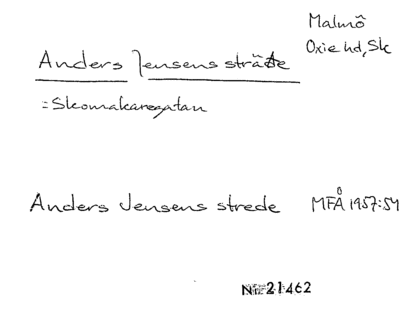 Malmö
Oxie hd, Sk
Anders Jensens sträde
=Skomakaregatan
Anders Jensens strede MFÅ 1957:54
Nr 21462